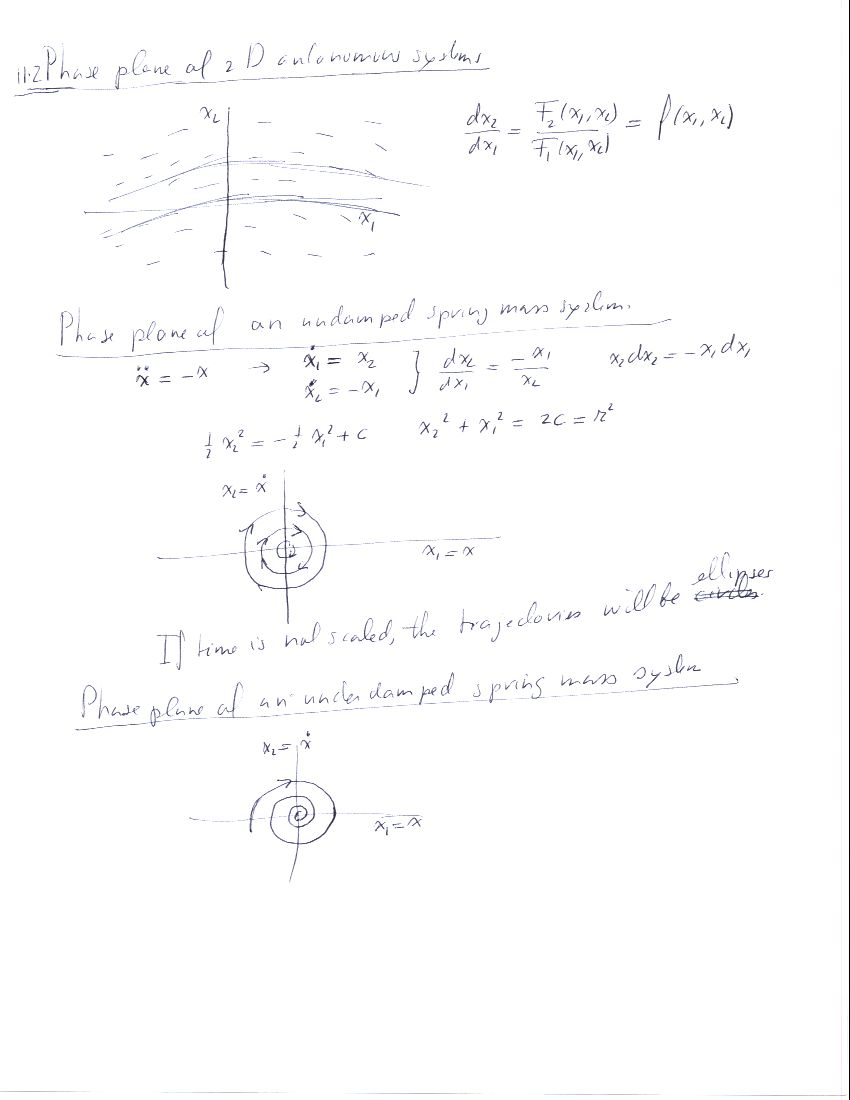 11.2 Phase plane of 2D autonomous systems
x₂
dx₂/dx₁ = F₂(x₁, x₂)/F₁(x₁, x₂) = f(x₁, x₂)
x₁
Phase plane of an undamped spring mass system.
ẍ = -x → ẋ₁ = x₂
ẋ₂ = -x₁ } dx₂/dx₁ = -x₁/x₂ x₂dx₂ = -x₁dx₁
½ x₂² = -½ x₁² + c x₂² + x₁² = 2c = r²
x₂ = ẋ
x₁ = x
If time is not scaled, the trajectories will be ~~circles~~ ellipses.
Phase plane of an underdamped spring mass system.
x₂ = ẋ
x₁ = x